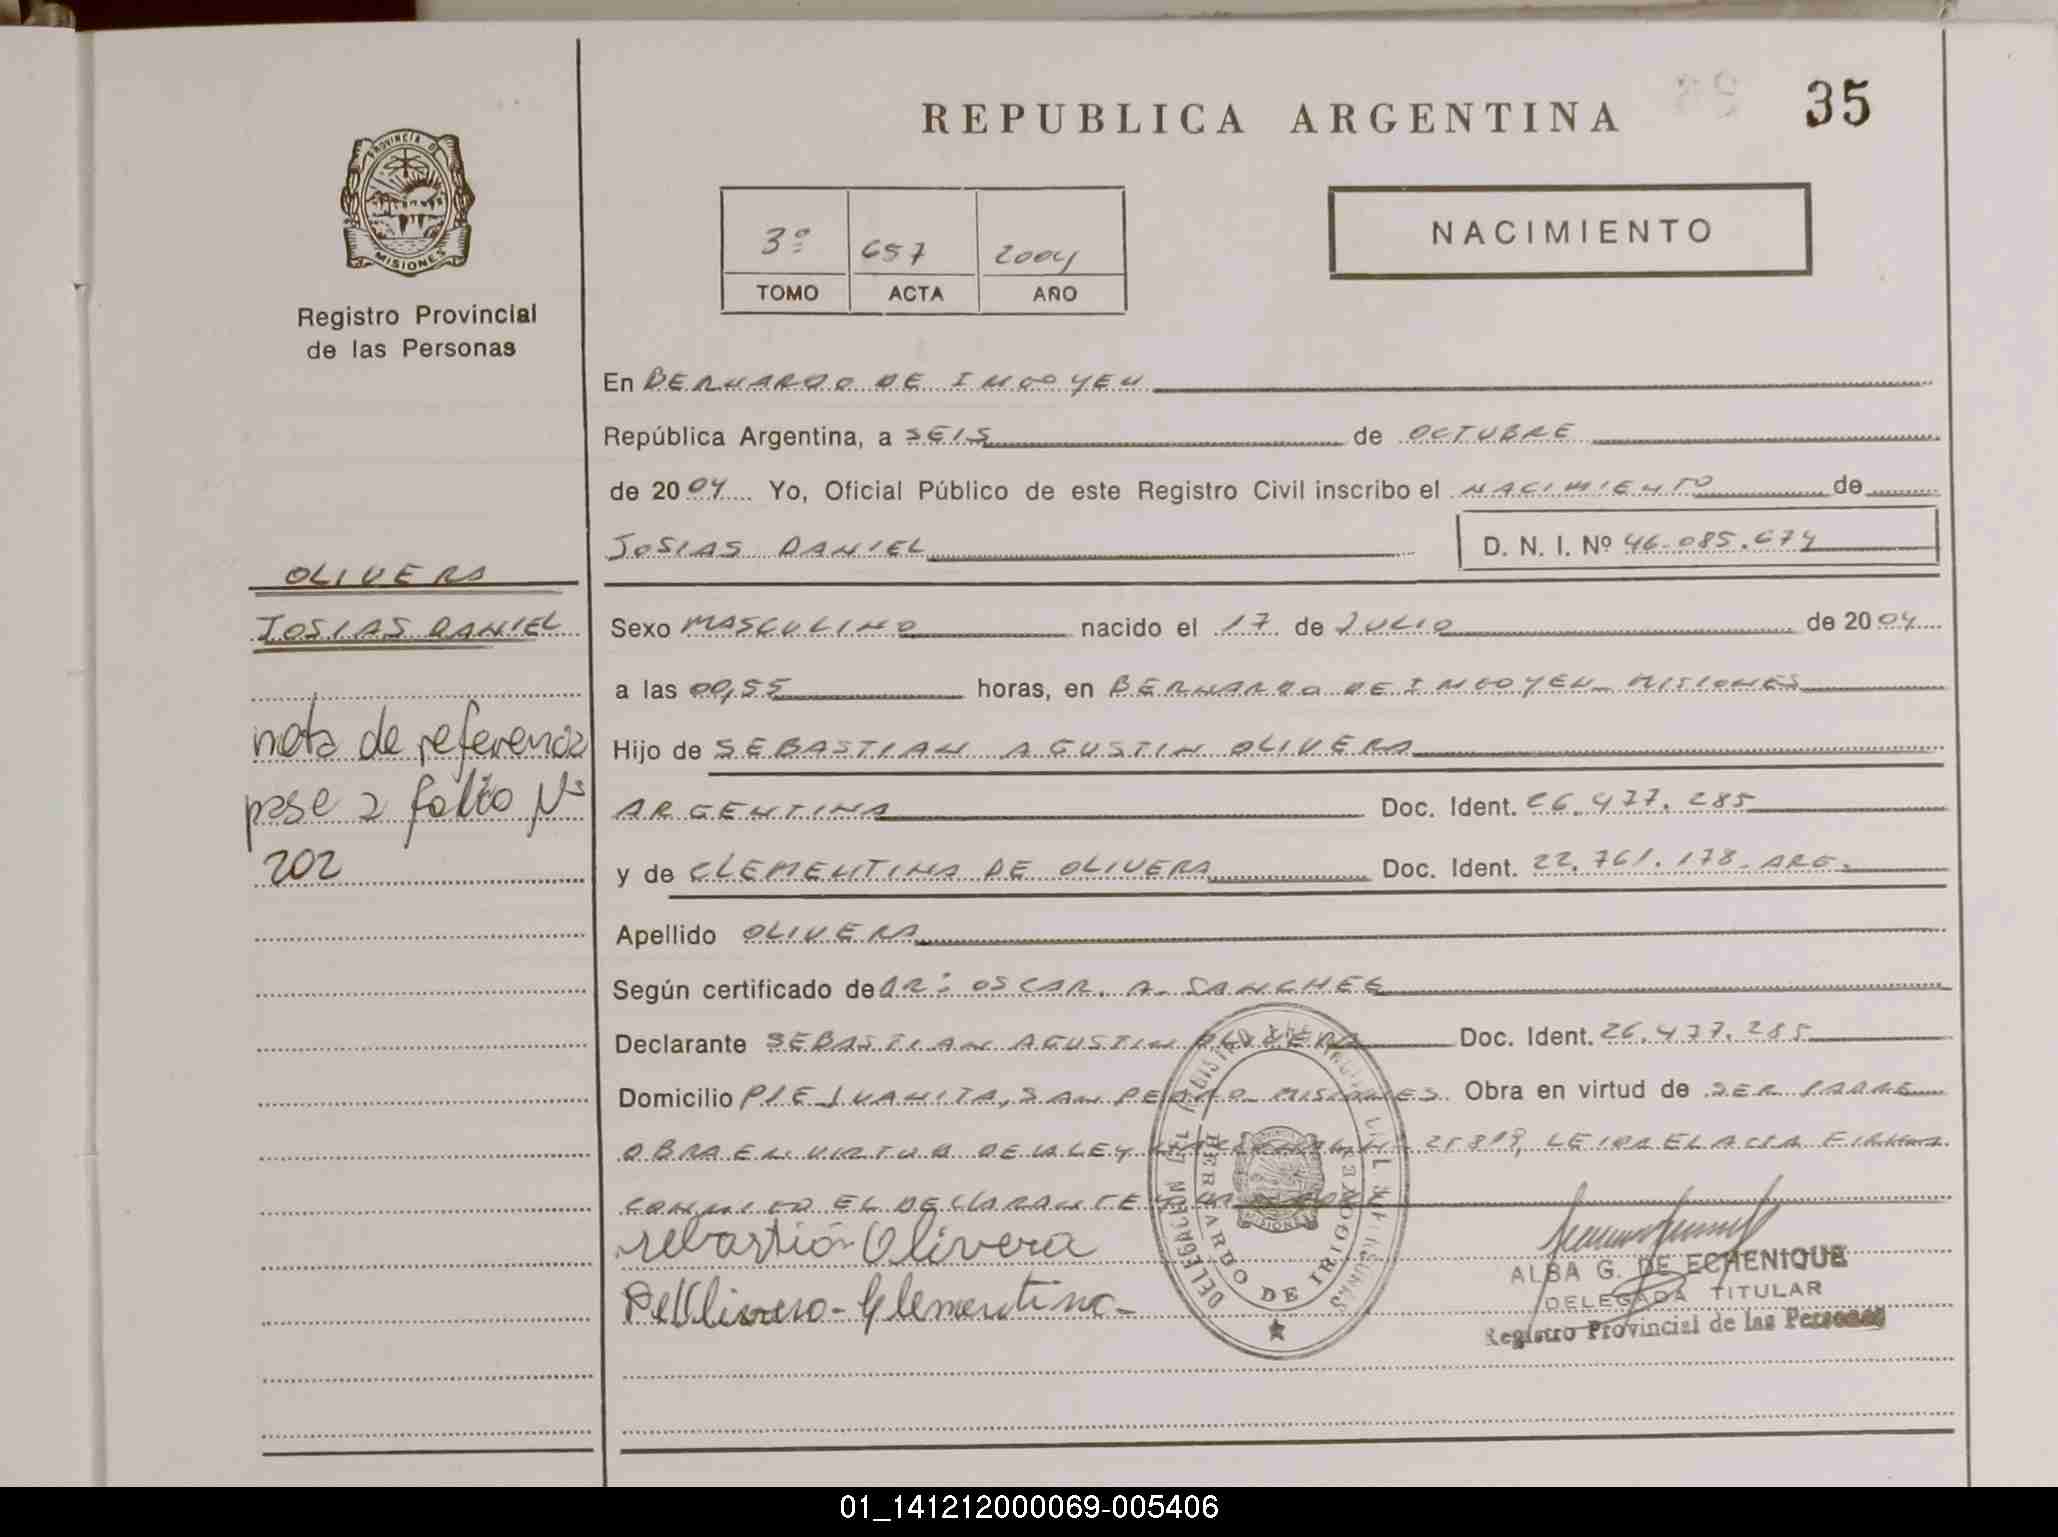 REPUBLICA ARGENTINA
35
PROVINCIA DE MISIONES
Registro Provincial
de las Personas
3º 657 2004
TOMO ACTA AÑO
NACIMIENTO
En BERNARDO DE IRIGOYEN
República Argentina, a SEIS de OCTUBRE
de 2004 Yo, Oficial Público de este Registro Civil inscribo el NACIMIENTO de
JOSIAS DANIEL D. N. I. Nº 46.085.674
OLIVERA
JOSIAS DANIEL
nota de referencia
pase a folio Nº
202
Sexo MASCULINO nacido el 17 de JULIO de 2004
a las 00,55 horas, en BERNARDO DE IRIGOYEN MISIONES
Hijo de SEBASTIAN AGUSTIN OLIVERA
ARGENTINA Doc. Ident. 26.477.285
y de CLEMENTINA DE OLIVERA Doc. Ident. 22.761.178 ARG.
Apellido OLIVERA
Según certificado de DR: OSCAR. A. SANCHEZ
Declarante SEBASTIAN AGUSTIN OLIVERA Doc. Ident. 26.477.285
Domicilio PJE JUANITA, SAN PEDRO MISIONES Obra en virtud de SER PADRE
OBRA EN VIRTUD DE LA LEY NACIONAL Nº LEIDA EL ACTA FIRMAN
CONMIGO EL DECLARANTE Y LA MADRE
Sebastián Olivera
De Olivera - Clementina -
DELEGACION DEL REGISTRO PROVINCIAL DE LAS PERSONAS
BERNARDO DE IRIGOYEN
MISIONES
ALBA G. DE ECHENIQUE
DELEGADA TITULAR
Registro Provincial de las Personas
01_141212000069-005406